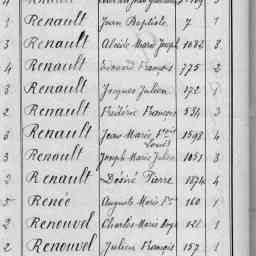 Renault Jean Baptiste 7 1
3 Renault Alcide Marie Joseph 1082 3
4 Renault Edouard François 775 2
3 Renault Jacques Julien 172
2 Renault Frédéric François 534 3
3 Renault Jean Marie Fçois Louis 1598 4
3 Renault Joseph Marie Julien 1051 3
2 Renault Désiré Pierre 1874 4
5 Renée Auguste Marie 160 1
2 Renouvel Charles Marie 1
2 Renouvel Julien François 157 1